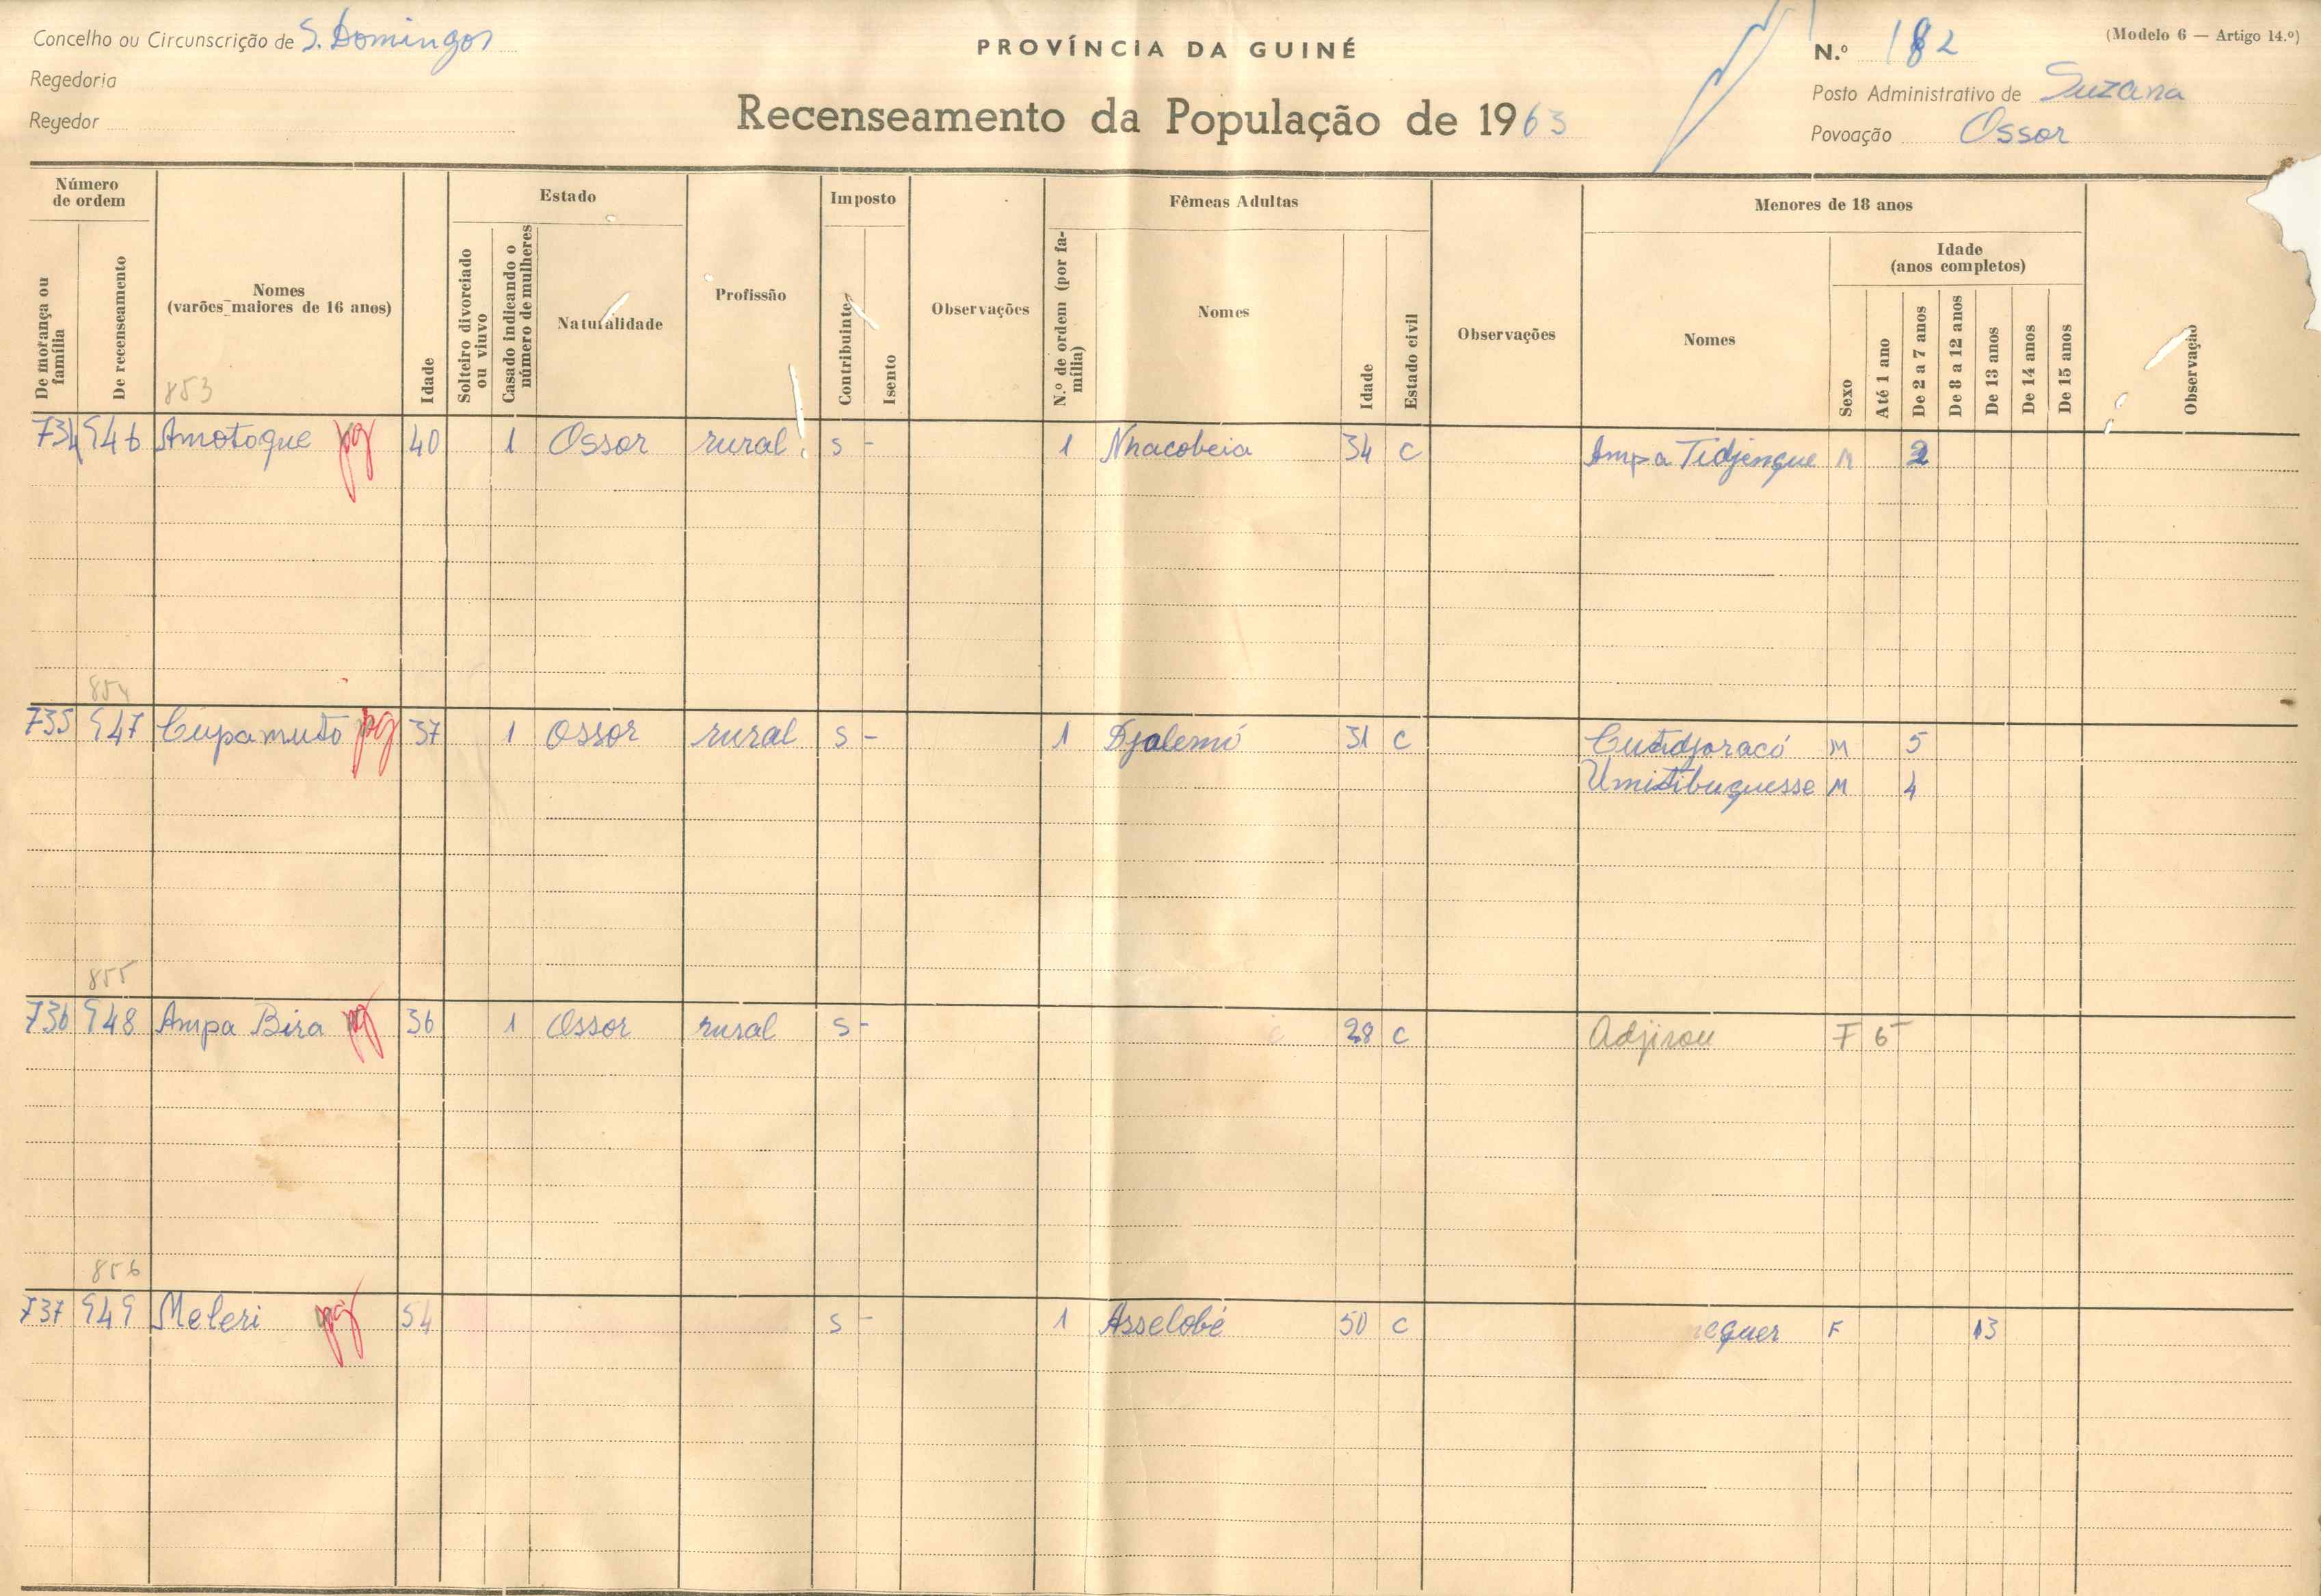 Concelho ou Circunscrição de S. Domingos
Regedoria
Regedor
PROVÍNCIA DA GUINÉ
Recenseamento da População de 1963
(Modelo 6 — Artigo 14.º)
N.º 182
Posto Administrativo de Suzana
Povoação Ossor
Número de ordem
De morança ou família
De recenseamento
Nomes
(varões maiores de 16 anos)
853
Idade
Estado
Solteiro divorciado ou viuvo
Casado indicando o número de mulheres
Naturalidade
Profissão
Imposto
Contribuinte
Isento
Observações
Fêmeas Adultas
N.º de ordem (por família)
Nomes
Idade
Estado civil
Observações
Menores de 18 anos
Nomes
Sexo
Idade
(anos completos)
Até 1 ano
De 2 a 7 anos
De 8 a 12 anos
De 13 anos
De 14 anos
De 15 anos
Observação
734 946 Amotoque pg 40 1 Ossor rural s - 1 Nhacobeia 34 C Ampa Tidjenque M 2
854
735 947 Cupamuto pg 37 1 Ossor rural s - 1 Djalemó 31 C Cutidjoracó M 5
Umitibuquesse M 4
855
736 948 Ampa Bira pg 36 1 Ossor rural s - 28 C Adjirou F 6
856
737 949 Meleri pg 54 s - 1 Asselobé 50 C equer F 13